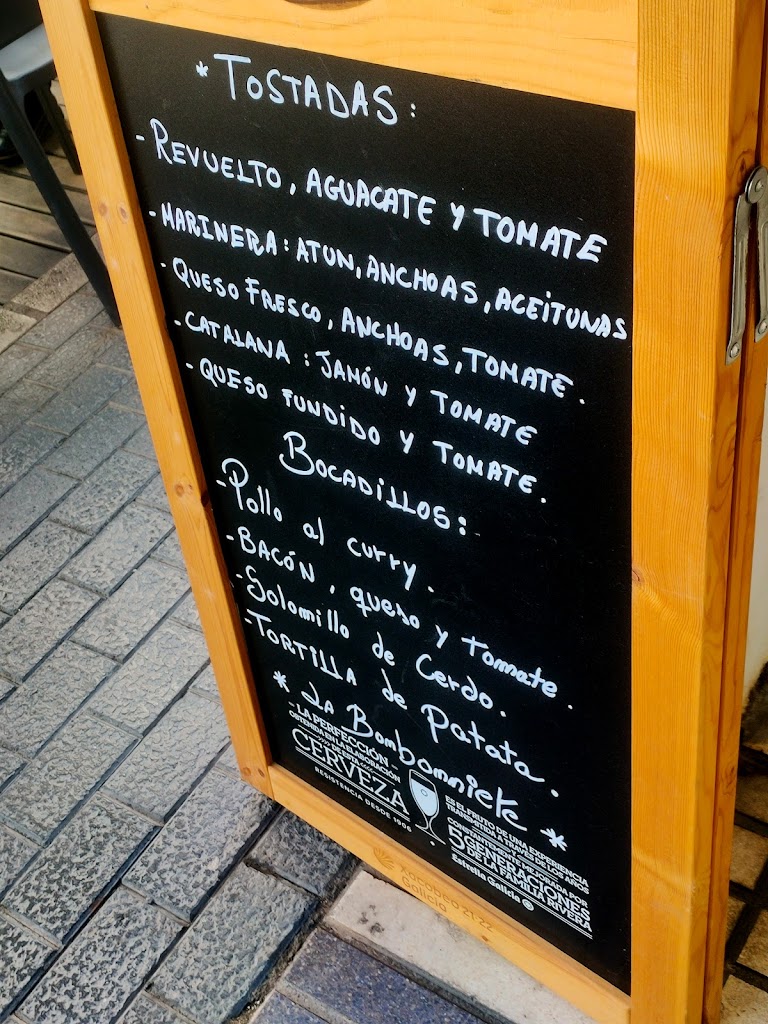 * TOSTADAS:
- REVUELTO, AGUACATE Y TOMATE
- MARINERA: ATUN, ANCHOAS, ACEITUNAS
- QUESO FRESCO, ANCHOAS, TOMATE.
- CATALANA: JAMÓN Y TOMATE
- QUESO FUNDIDO Y TOMATE.
BOCADILLOS:
- Pollo al curry.
- BACÓN, queso y tomate.
- Solomillo de Cerdo.
- TORTILLA de Patata.
* LA Bombonniete *
- LA PERFECCIÓN -
OBTENIDA EN LA ELABORACIÓN
DE ESTA
CERVEZA
RESISTENCIA DESDE 1906
ES EL FRUTO DE UNA EXPERIENCIA
TRANSMITIDA A TRAVÉS DE LOS AÑOS
CONSTANTEMENTE MEJORADA POR
5 GENERACIONES
DE LA FAMILIA RIVERA
Estrella Galicia
Xacobeo 21·22
Galicia